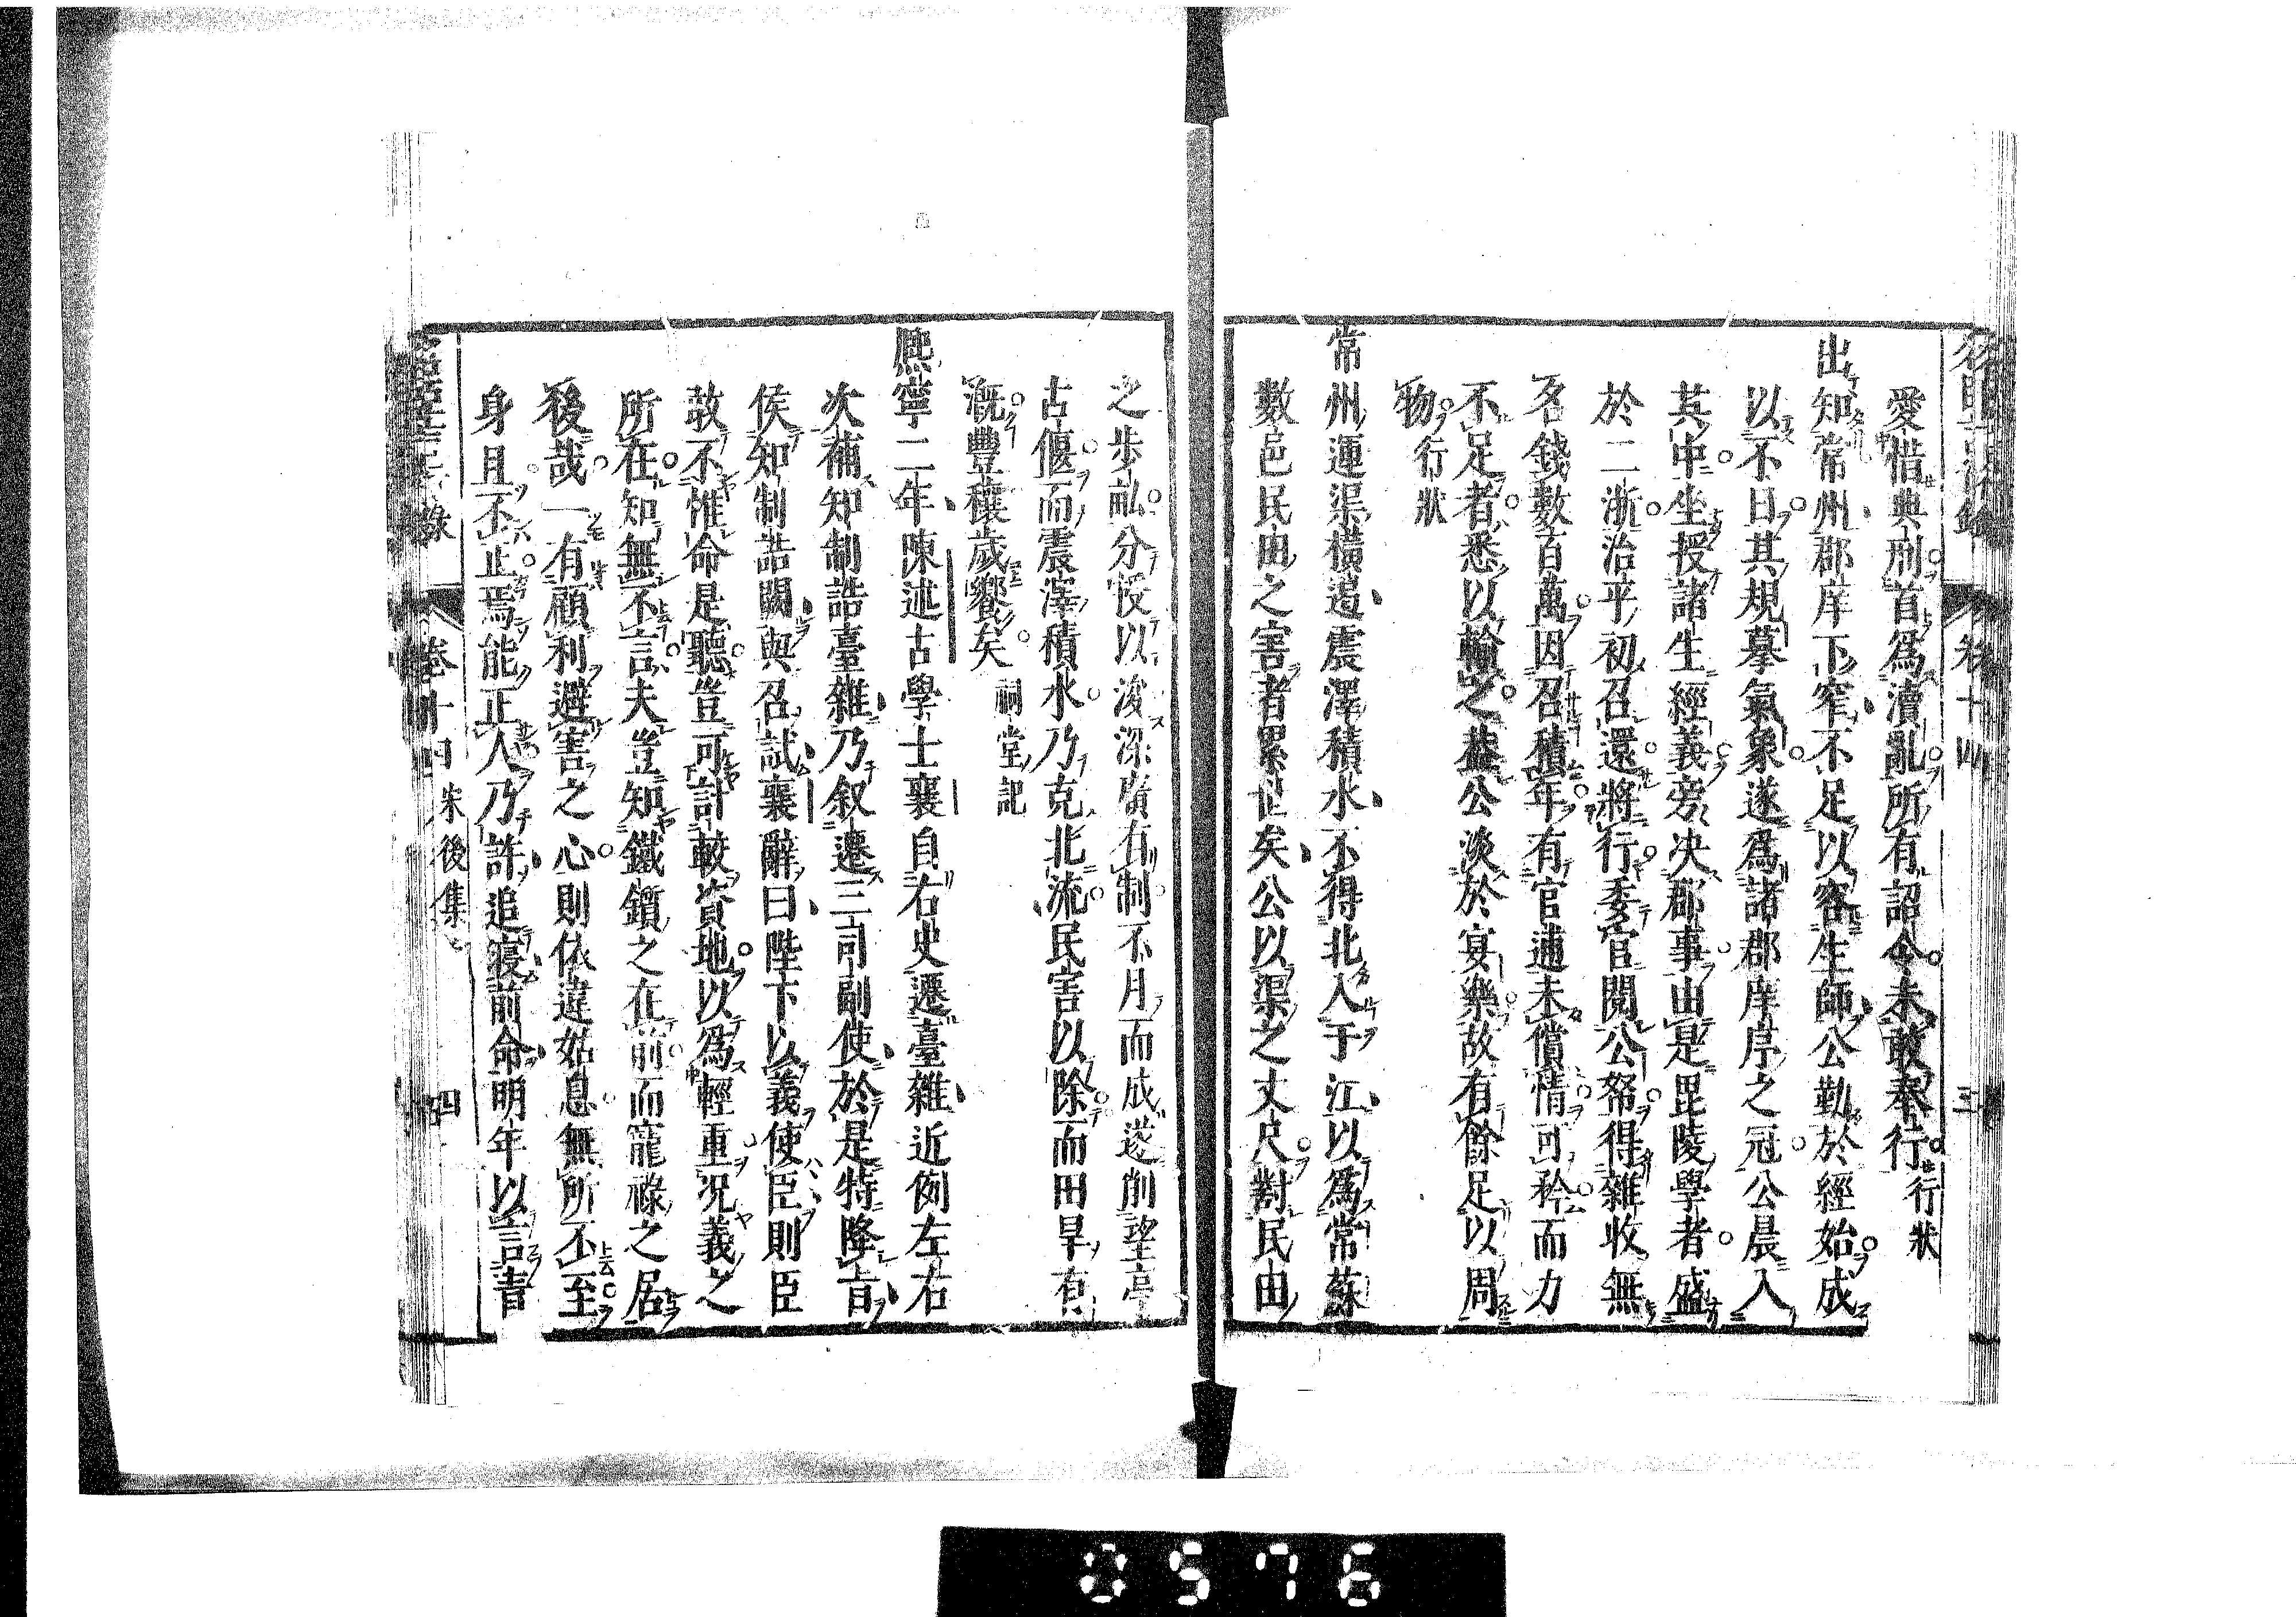 愛惜典刑首爲瀆亂所有詔令未敢奉行行狀
出知常州郡庠下窄不足以容生師公勤於經始成
以不日其規摹氣象遂爲諸郡庠序之冠公晨入
其中坐授諸生經義旁决郡事由是毘陵學者盛
於二浙治平初召還將行委官閱公帑得雜收無
名錢數百萬因召積年有官逋未償情可矜而力
不足者悉以輸之蓋公淡於宴樂故有餘足以周
物行狀
常州運渠橫遏震澤積水不得北入于江以爲常蘇
數邑民田之害者累世矣公以渠之丈尺對民田
卷十四
三
之步畝分授以浚深廣有制不月而成遂削望亭
古偃而震澤積水乃克北流民害以除而田旱有
漑豐穰歲饗矣祠堂記
熈寧二年陳述古學士襄自右史遷臺雜近例左右
次補知制誥臺雜乃叙遷三司副使於是特降旨
侯知制誥闕與召試襄辭曰陛下以義使臣則臣
故不惟命是聽豈可計較資地以爲輕重况義之
所在知無不言夫豈知鐵鑕之在前而寵祿之居
後哉一有顧利避害之心則依違姑息無所不至
身且不正焉能正人乃許追寢前命明年以言青
卷十四
宋後集
四
0576